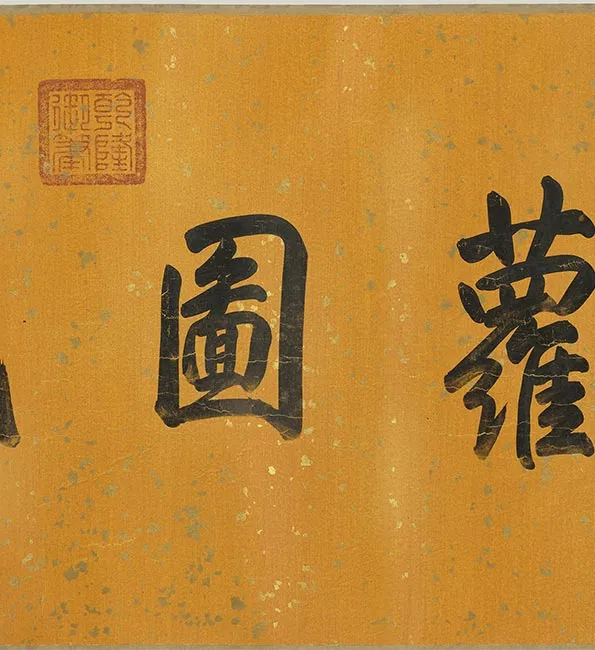 蘿圖
乾隆
御筆